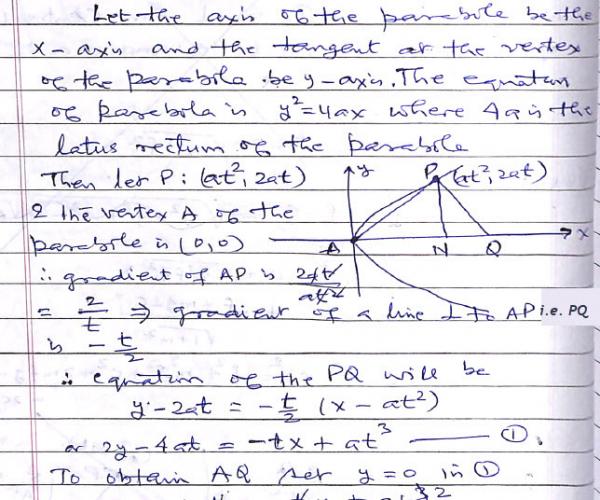 Let the axis of the parabola be the
x-axis and the tangent at the vertex
of the parabola be y-axis. The equation
of parabola is y²=4ax where 4a is the
latus rectum of the parabola
Then let P: (at², 2at)
& the vertex A of the
parabola is (0,0)
y
P (at², 2at)
A N Q x
∴ gradient of AP is 2at/at²
= 2/t ⇒ gradient of a line ⊥ to AP i.e. PQ
is -t/2
∴ equation of the PQ will be
y-2at = -t/2 (x-at²)
or 2y-4at = -tx+at³ —— ①.
To obtain AQ set y=0 in ①